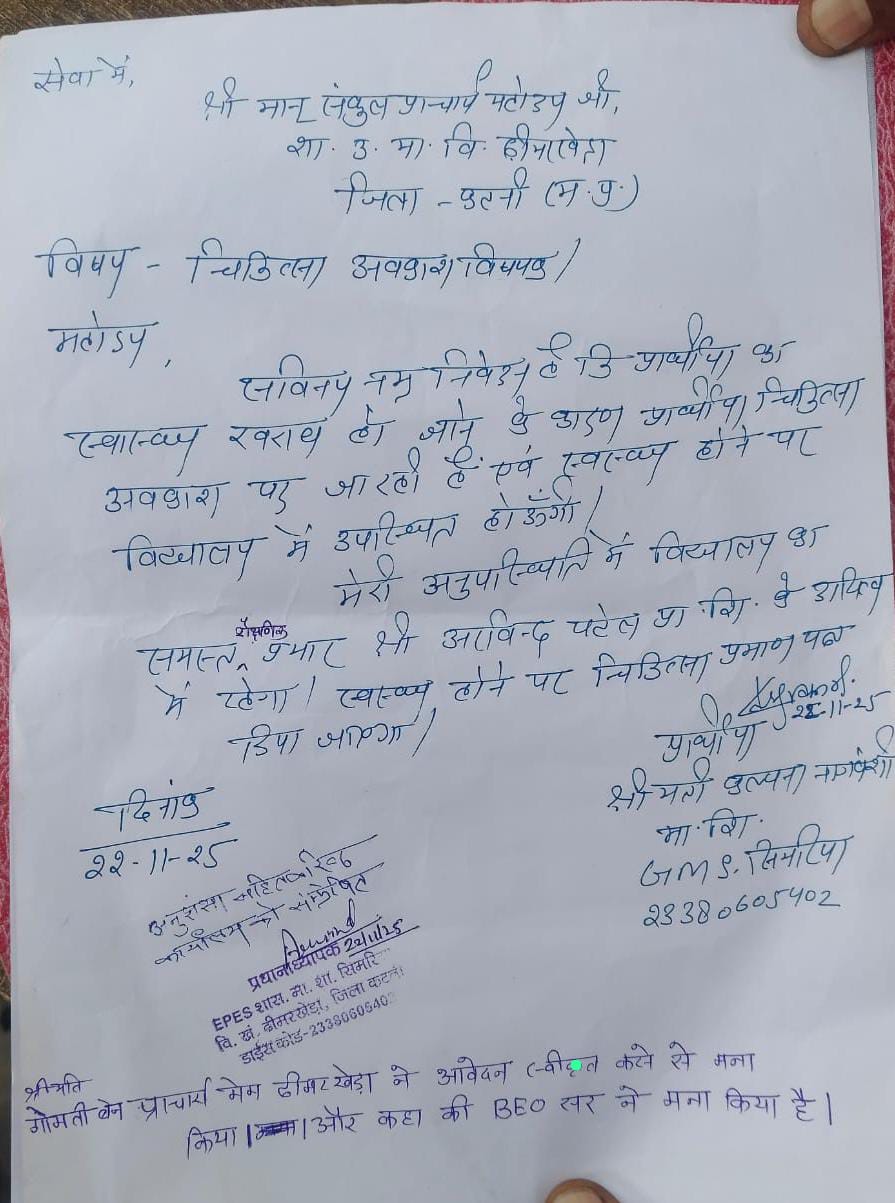 सेवा में,
श्री मान् संकुल प्राचार्य महोदय जी,
शा. उ. मा. वि. ढीमरखेड़ा
जिला - कटनी (म.प्र.)
विषय - चिकित्सा अवकाश विषयक।
महोदय,
सविनय नम्र निवेदन है कि प्रार्थीया का
स्वास्थ्य खराब हो जाने के कारण प्रार्थीया चिकित्सा
अवकाश पर जा रही हैं एवं स्वास्थ्य होने पर
विद्यालय में उपस्थित होऊँगी।
मेरी अनुपस्थिति में विद्यालय का
समस्त शैक्षणिक प्रभार श्री अरविन्द पटेल प्रा.शि. के दायित्व
में रहेगा। स्वास्थ्य होने पर चिकित्सा प्रमाण पत्र
दिया जाएगा।
22-11-25
प्रार्थीया
श्रीमती कल्पना नागवंशी
मा. शि.
G.M.S. सिमरिया
23380605402
दिनांक
22-11-25
अनुशंसा सहित वरिष्ठ
कार्यालय को संप्रेषित
22/11/25
प्रधानाध्यापक
EPES शास. मा. शा. सिमरि
वि. खं. ढीमरखेड़ा, जिला कटनी
डाईस कोड-2338060540
श्रीमति
गोमती बेन प्राचार्य मेम ढीमरखेड़ा ने आवेदन स्वीकृत करने से मना
किया। और कहा की BEO सर ने मना किया है।